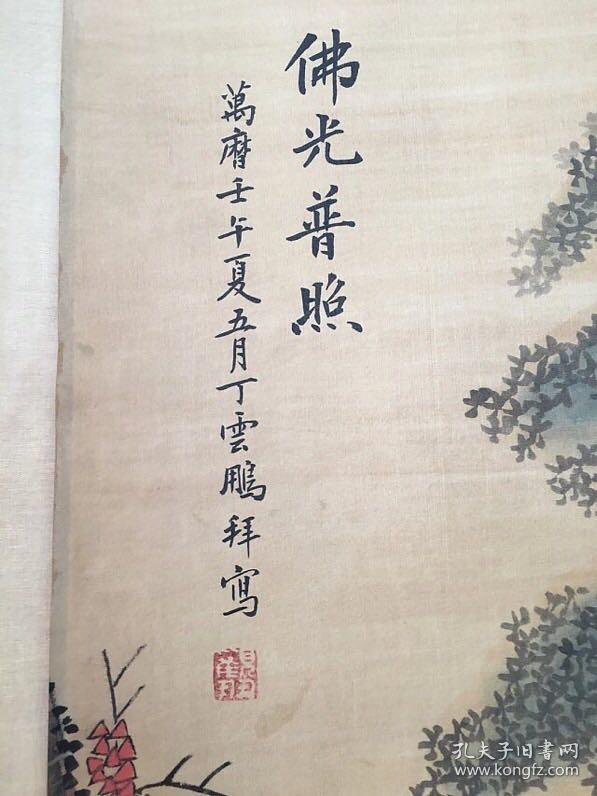 佛光普照
萬曆壬午夏五月丁雲鵬拜寫
孔夫子旧书网
www.kongfz.com